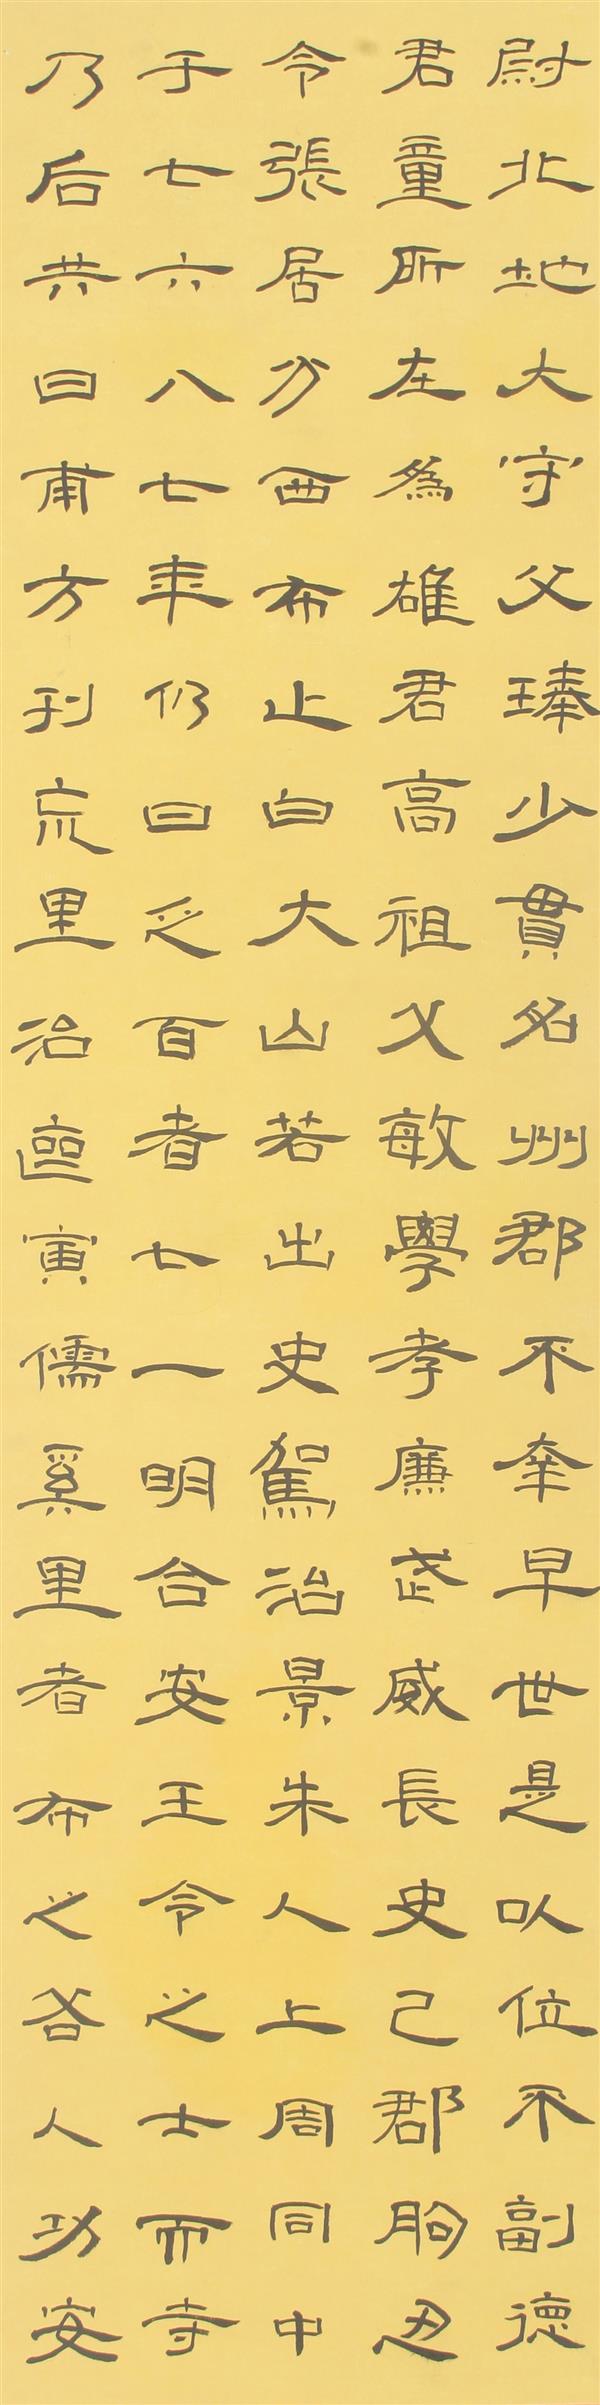 尉北地大守父琫少貫名州郡不幸早世是以位不副德
君童所在為雄君高祖父敏學孝廉武威長史己郡朐忍
令張居分西布止白大山若出史駕治景朱人上周同中
于七六八七年仍曰乏百者七一明合安王令之士而寺
乃后共曰甫方刊荒里治亟寅儒奚里者布之咎人功安